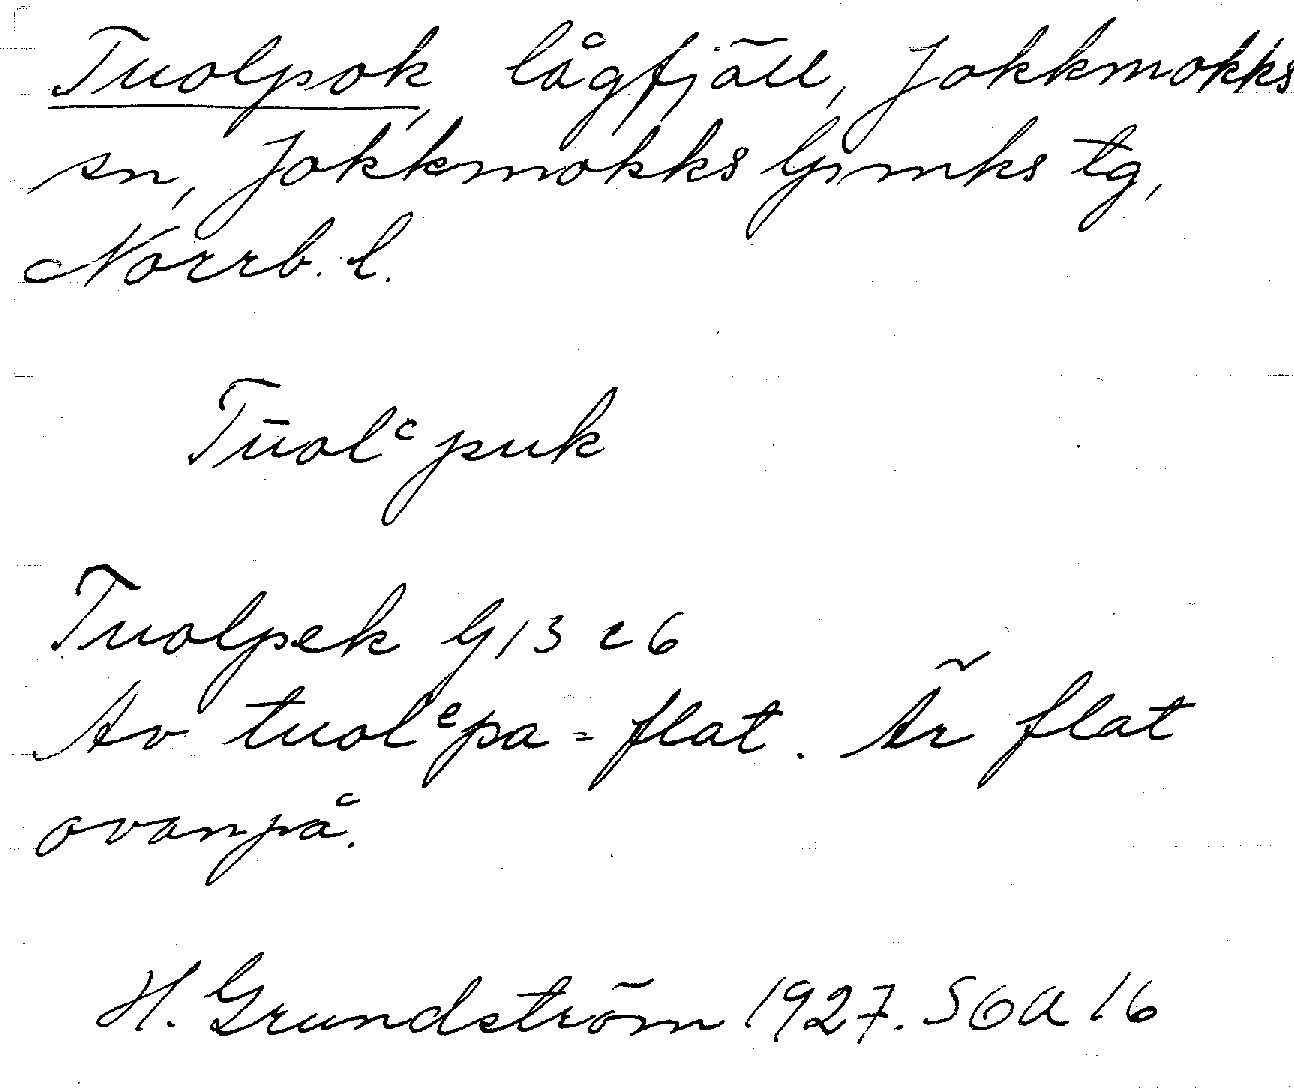 Tuolpok, lågfjäll, Jokkmokks
sn, Jokkmokks lpmks tg,
Norrb. l.
Tūolᶜpuk
Tuolpek G13 c6
Av tuolᵉpa = flat. Är flat
ovanpå.
H. Grundström 1927. SOA 16